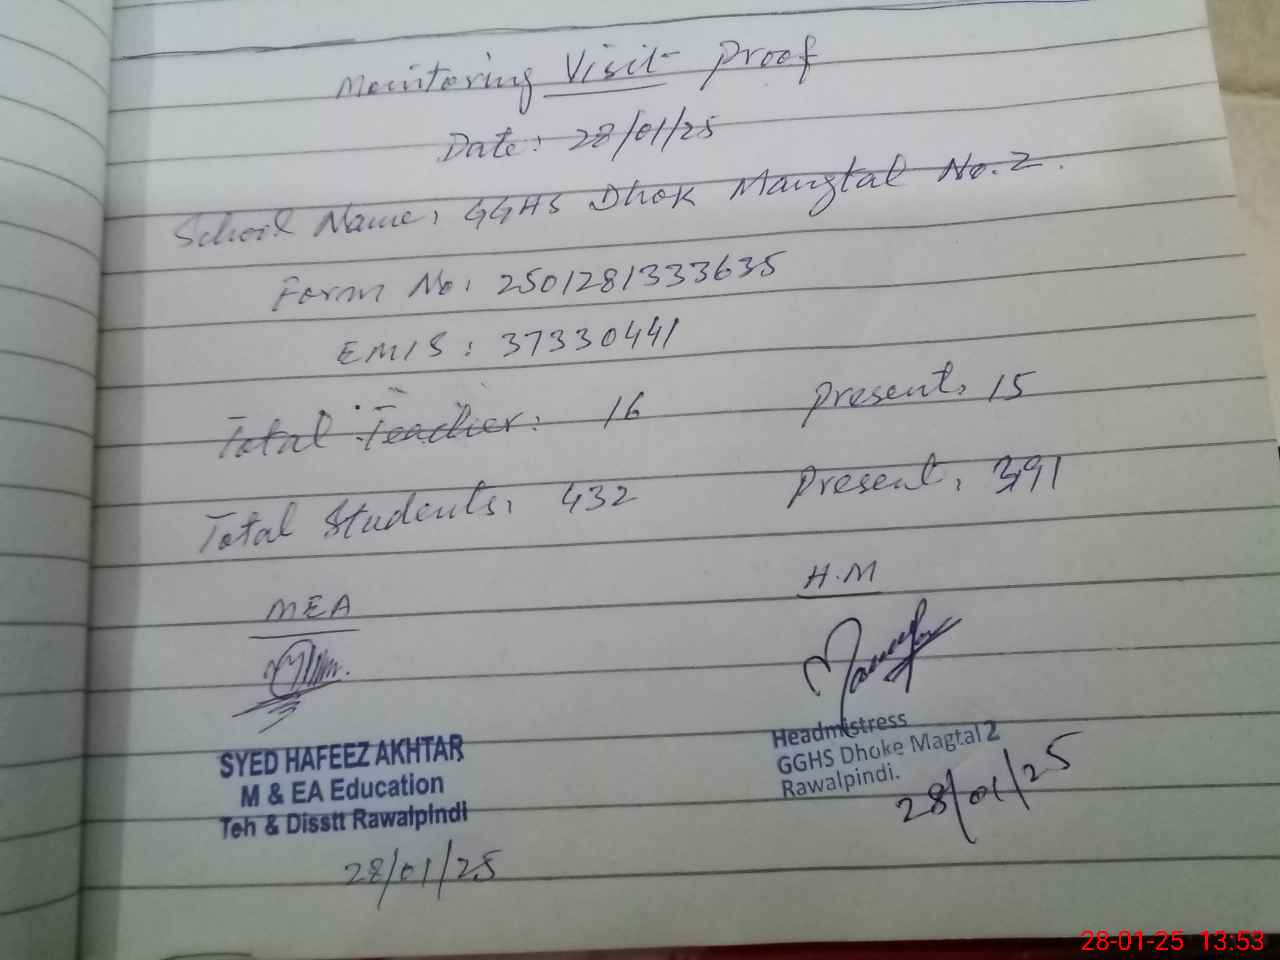 Monitoring Visit Proof
Date: 28/01/25
School Name: GGHS Dhok Mangtal No.2.
Form No: 2501281333635
EMIS: 37330441
Total Teacher: 16 Present: 15
Total Students: 432 Present: 391
MEA H.M
SYED HAFEEZ AKHTAR
M & EA Education
Teh & Disstt Rawalpindi
28/01/25
Headmistress
GGHS Dhoke Magtal 2
Rawalpindi.
28/01/25
28-01-25 13:53